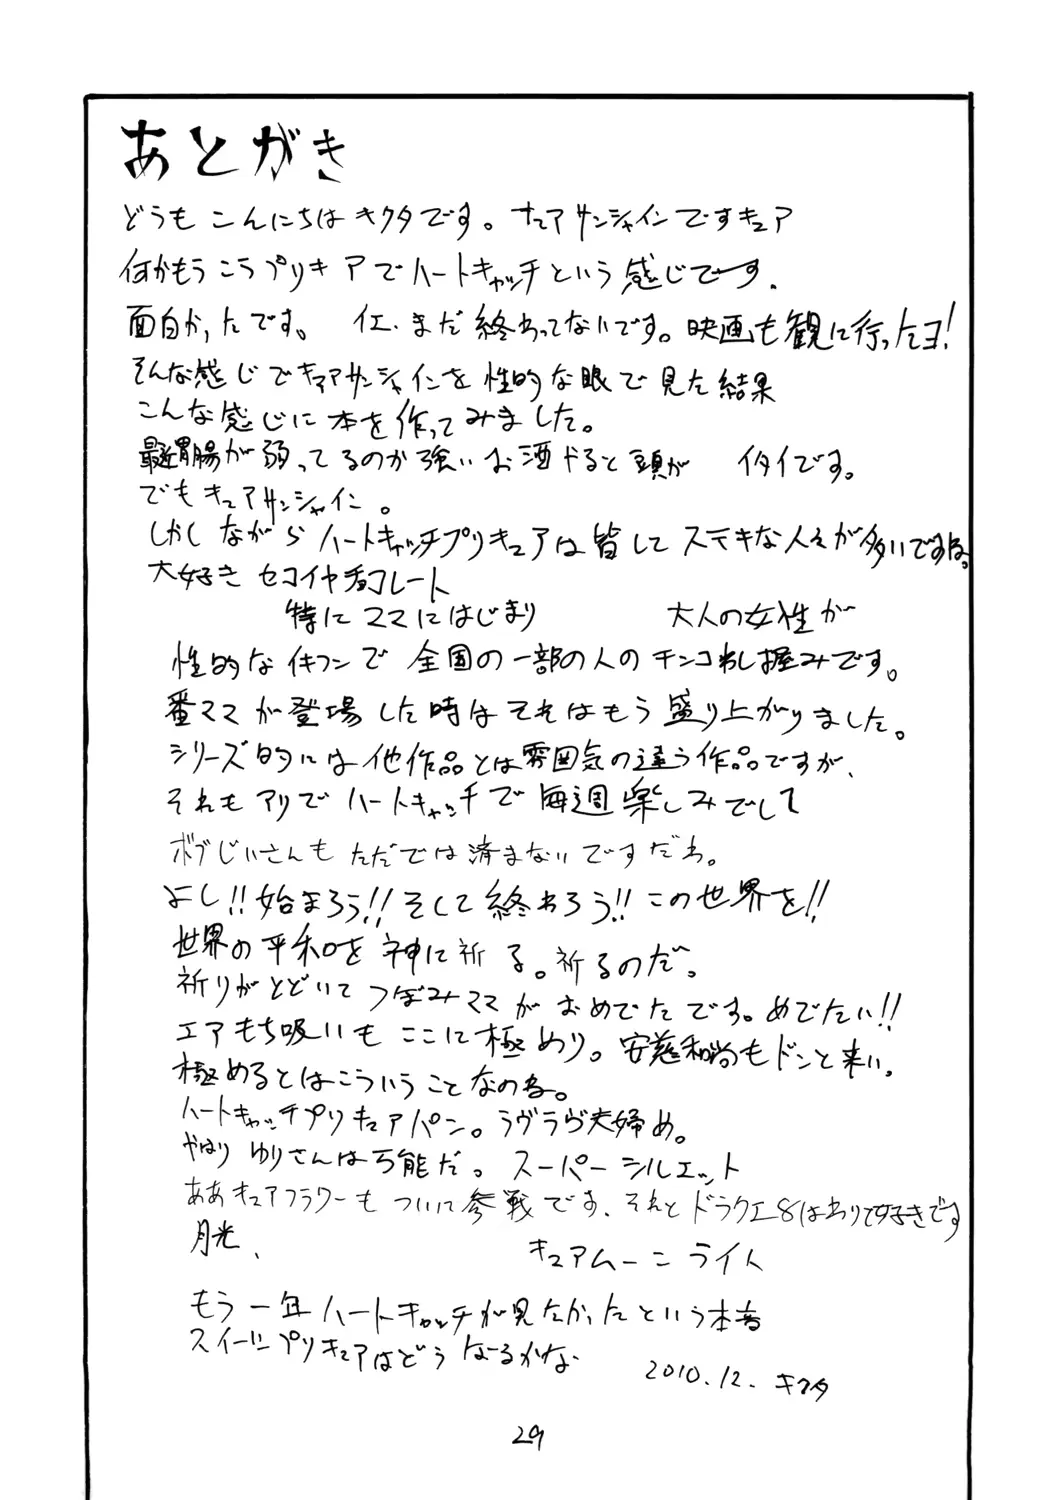 あとがき
どうもこんにちはキクタです。キュアサンシャインですキュア
何かもうこうプリキュアでハートキャッチという感じです。
面白かったです。 イエ、まだ終わってないです。映画も観に行ったヨ!
そんな感じでキュアサンシャインを性的な眼で見た結果
こんな感じに本を作ってみました。
最近胃腸が弱ってるのか強いお酒やると頭が イタイです。
でもキュアサンシャイン。
しかしながらハートキャッチプリキュアは皆してステキな人々が多いですな。
大好き セコイヤチョコレート
特にママにはじまり 大人の女性が
性的なイキフンで全国の一部の人のチンコわし握みです。
番ママが登場した時はそれはもう盛り上がりました。
シリーズ的には他作品とは雰囲気の違う作品ですが、
それもアリでハートキャッチで毎週楽しみでして
ボブじいさんもただでは済まないですだわ。
よし!!始まろう!!そして終わろう!!この世界を!!
世界の平和を神に祈る。祈るのだ。
祈りがとどいてつぼみママがおめでたです。めでたい!!
エアもち吸いもここに極めり。安慈和尚もドンと来い。
極めるとはこういうことなのね。
ハートキャッチプリキュアパン。ラヴラヴ夫婦め。
やはりゆりさんは万能だ。スーパーシルエット
ああキュアフラワーもついに参戦です、それとドラクエ8はわりて好きです
月光、
キュアムーンライト
もう一年ハートキャッチが見たかったという本音
スイートプリキュアはどうなるかな
2010.12. キクタ
29